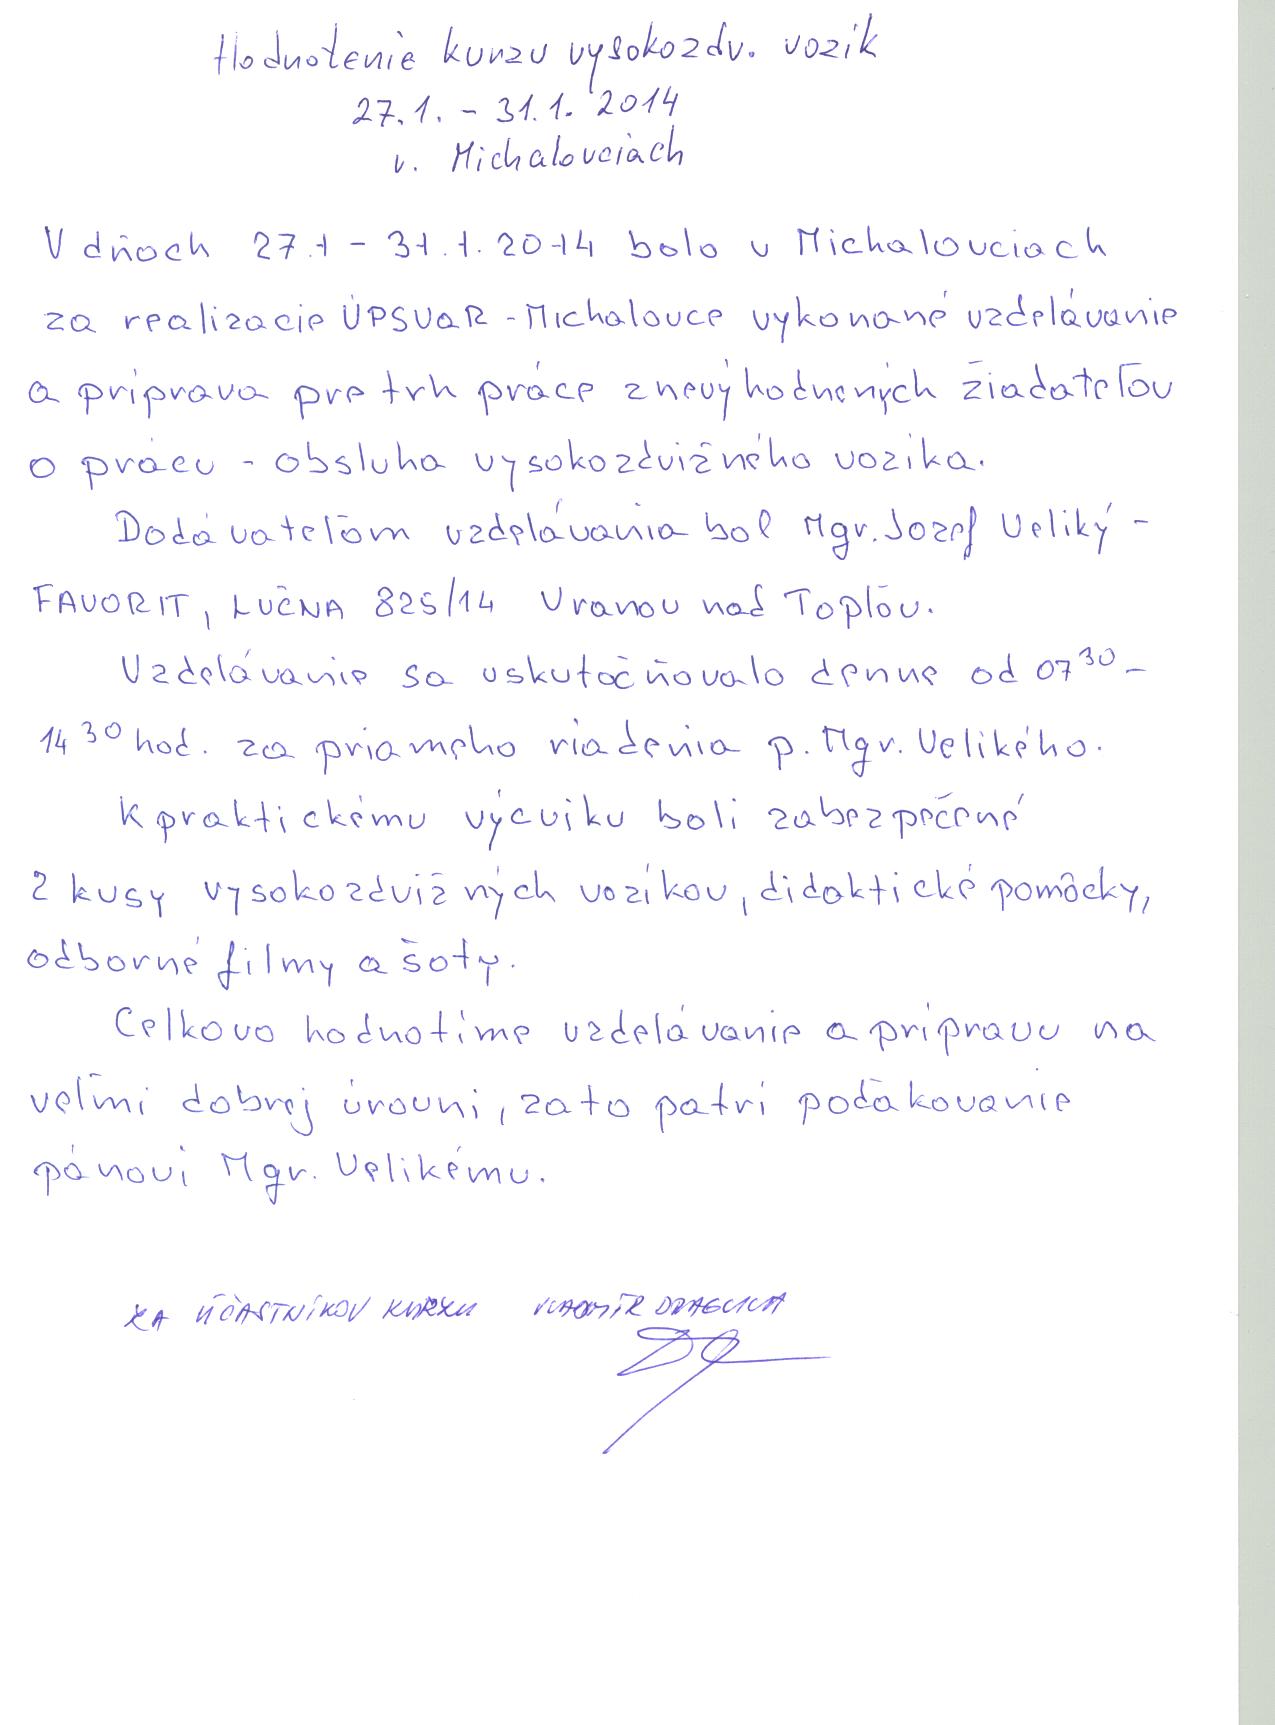 Hodnotenie kurzu vysokozdv. vozík
27.1. - 31.1. 2014
v. Michalovciach
V dňoch 27.1 - 31.1.2014 bolo v Michalovciach
za realizacie ÚPSVAR - Michalovce vykonané vzdelávanie
a príprava pre trh práce znevýhodnených žiadateľov
o prácu - obsluha vysokozdvižného vozíka.
Dodávateľom vzdelávania bol Mgr. Jozef Veliký -
FAVORIT, LUČNA 825/14 Vranov nad Topľou.
Vzdelávanie sa uskutočňovalo denne od 07 30 -
14 30 hod. za priameho riadenia p. Mgr. Velikého.
K praktickému výcviku boli zabezpečené
2 kusy vysokozdvižných vozíkov, didaktické pomôcky,
odborné filmy a šoty.
Celkovo hodnotíme vzdelávanie a prípravu na
veľmi dobrej úrovni, zato patrí poďakovanie
pánovi Mgr. Velikému.
ZA ÚČASTNÍKOV KURZU VLADIMÍR